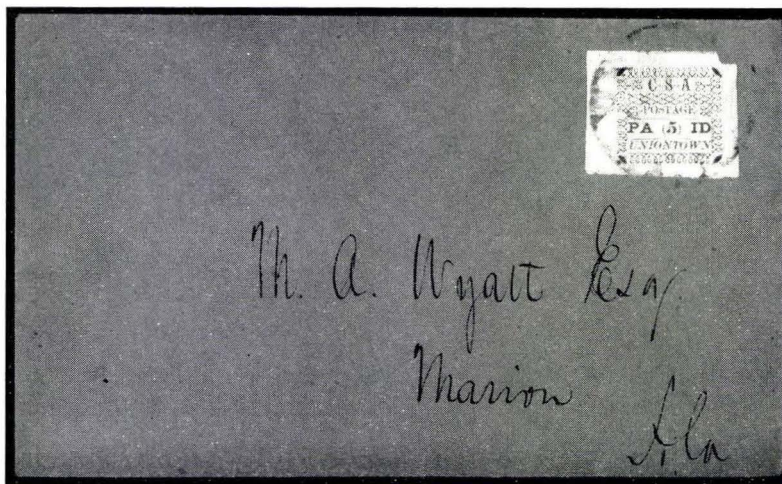 C·S·A
POSTAGE
PA (5) ID
UNIONTOWN
M. A. Wyatt Esq.
Marion
Ala